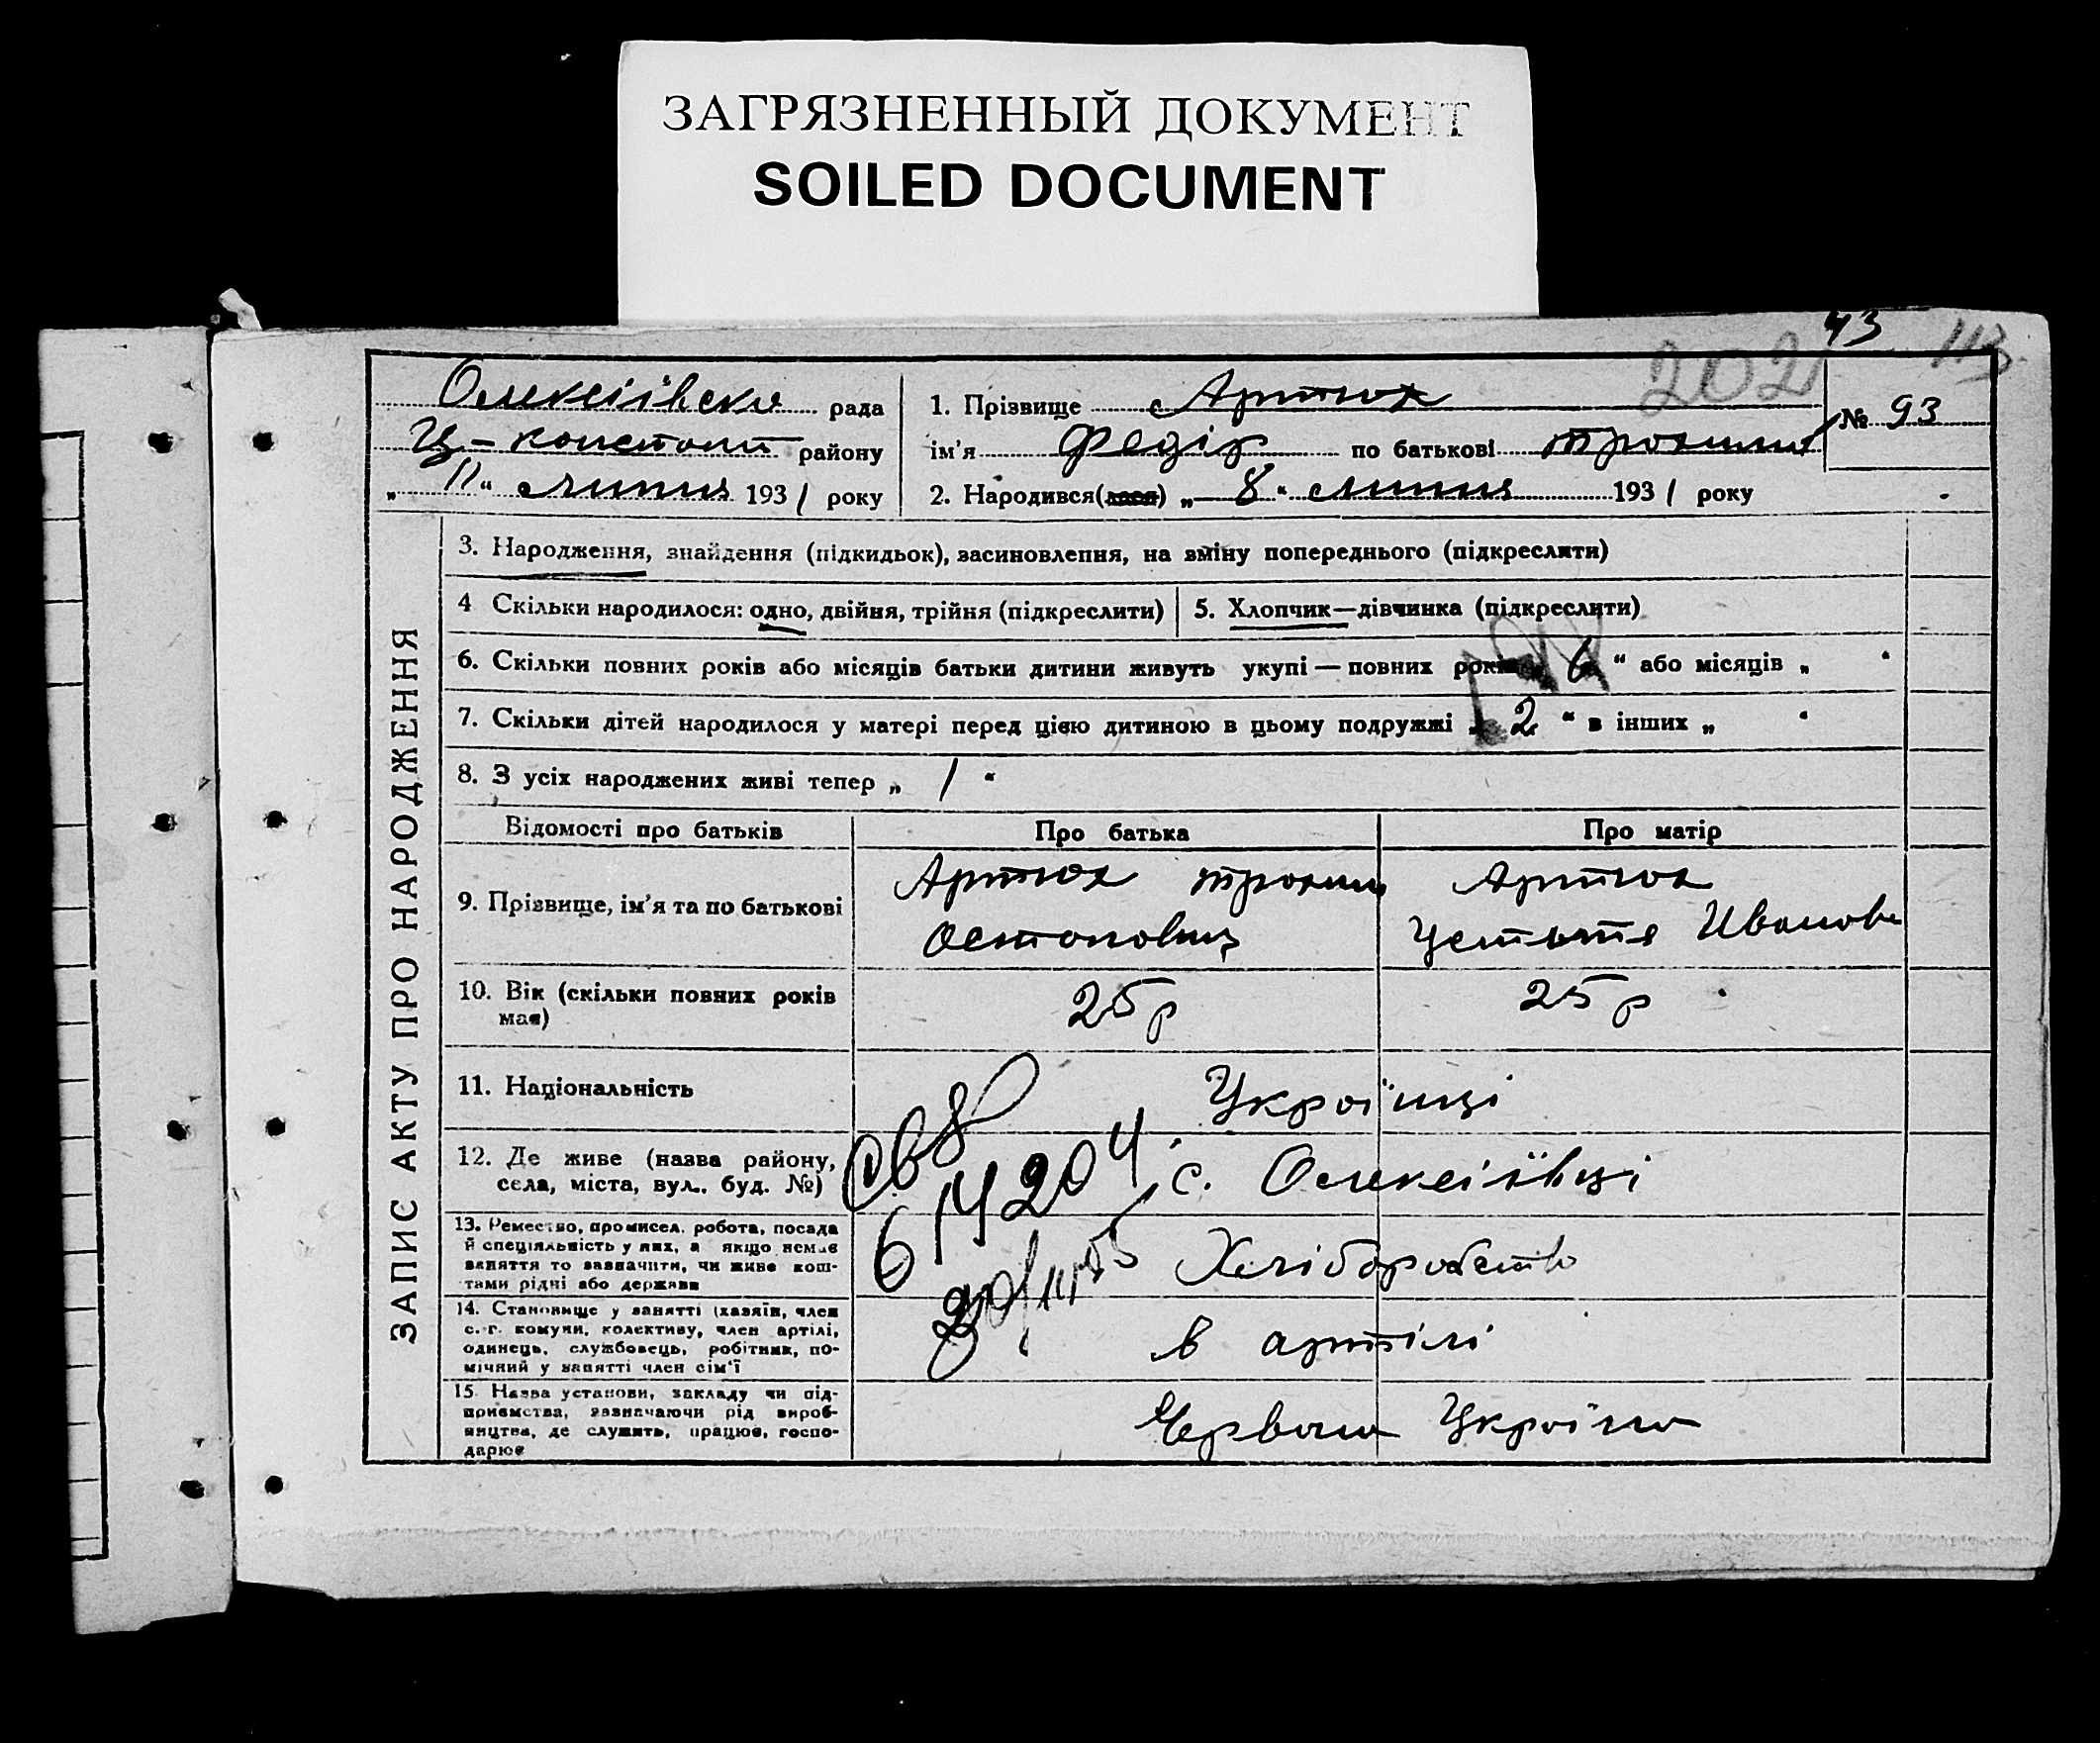 ЗАГРЯЗНЕННЫЙ ДОКУМЕНТ
SOILED DOCUMENT
43
113
202
Олексіївска рада
району
„ 11 “ липня 1931 року
1. Прізвище Артюх
ім'я Федір по батькові
№ 93
2. Народився(лася) „ 8 “ липня 1931 року
ЗАПИС АКТУ ПРО НАРОДЖЕННЯ
3. Народження, знайдення (підкидьок), засиновлення, на зміну попереднього (підкреслити)
4 Скільки народилося: одно, двійня, трійня (підкреслити)
5. Хлопчик—дівчинка (підкреслити)
6. Скільки повних років або місяців батьки дитини живуть укупі — повних років „ 6 “ або місяців „ “
7. Скільки дітей народилося у матері перед цією дитиною в цьому подружжі „ 2 “ в інших „ “
8. З усіх народжених живі тепер „ 1 “
Відомості про батьків
Про батька
Про матір
9. Прізвище, ім'я та по батькові
Артюх трохим
Остапович
Артюх
Устытя Иванов
10. Вік (скільки повних років
має)
25 р
25 р
11. Національність
Українці
12. Де живе (назва району,
села, міста, вул., буд. №)
с. Олексіївці
13. Ремество, промисел, робота, посада
й спеціяльність у них, а якщо немає
заняття то зазначити, чи живе кош-
тами рідні або держави
Хліборобство
14. Становище у занятті (хазяїн, член
с.-г. комуни, колективу, член артілі,
одинець, службовець, робітник, по-
мічний у занятті член сім'ї
в артілі
15. Назва установи, закладу чи під-
приємства, зазначаючи рід вироб-
ництва, де служить, працює, госпо-
дарює
Червона Україна